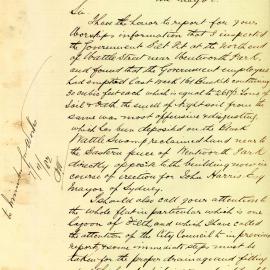 Sir
I have the honor to report for your
Worships information that I inspected
the Government Silt Pit at the North end
of Wattle Street near Wentworth Park,
and found that the Government employees
had emptied Cart each
30 cubic feet each which is equal to Tons of
Soil & that the smell of nightsoil from the
same was most offensive & disgusting
which has been deposited on the Black
Wattle Swamp reclaimed land near to
the Eastern fence of Wentworth Park
directly opposite to the building now in
course of erection for John Harris Esq
Mayor of Sydney.
I should also call your attention to
the whole flat in particular which is one
Lagoon of Filth, and which I have called
the attention of the City Council to in previous
reports, & some immediate steps must be
taken for the proper drainage and filling